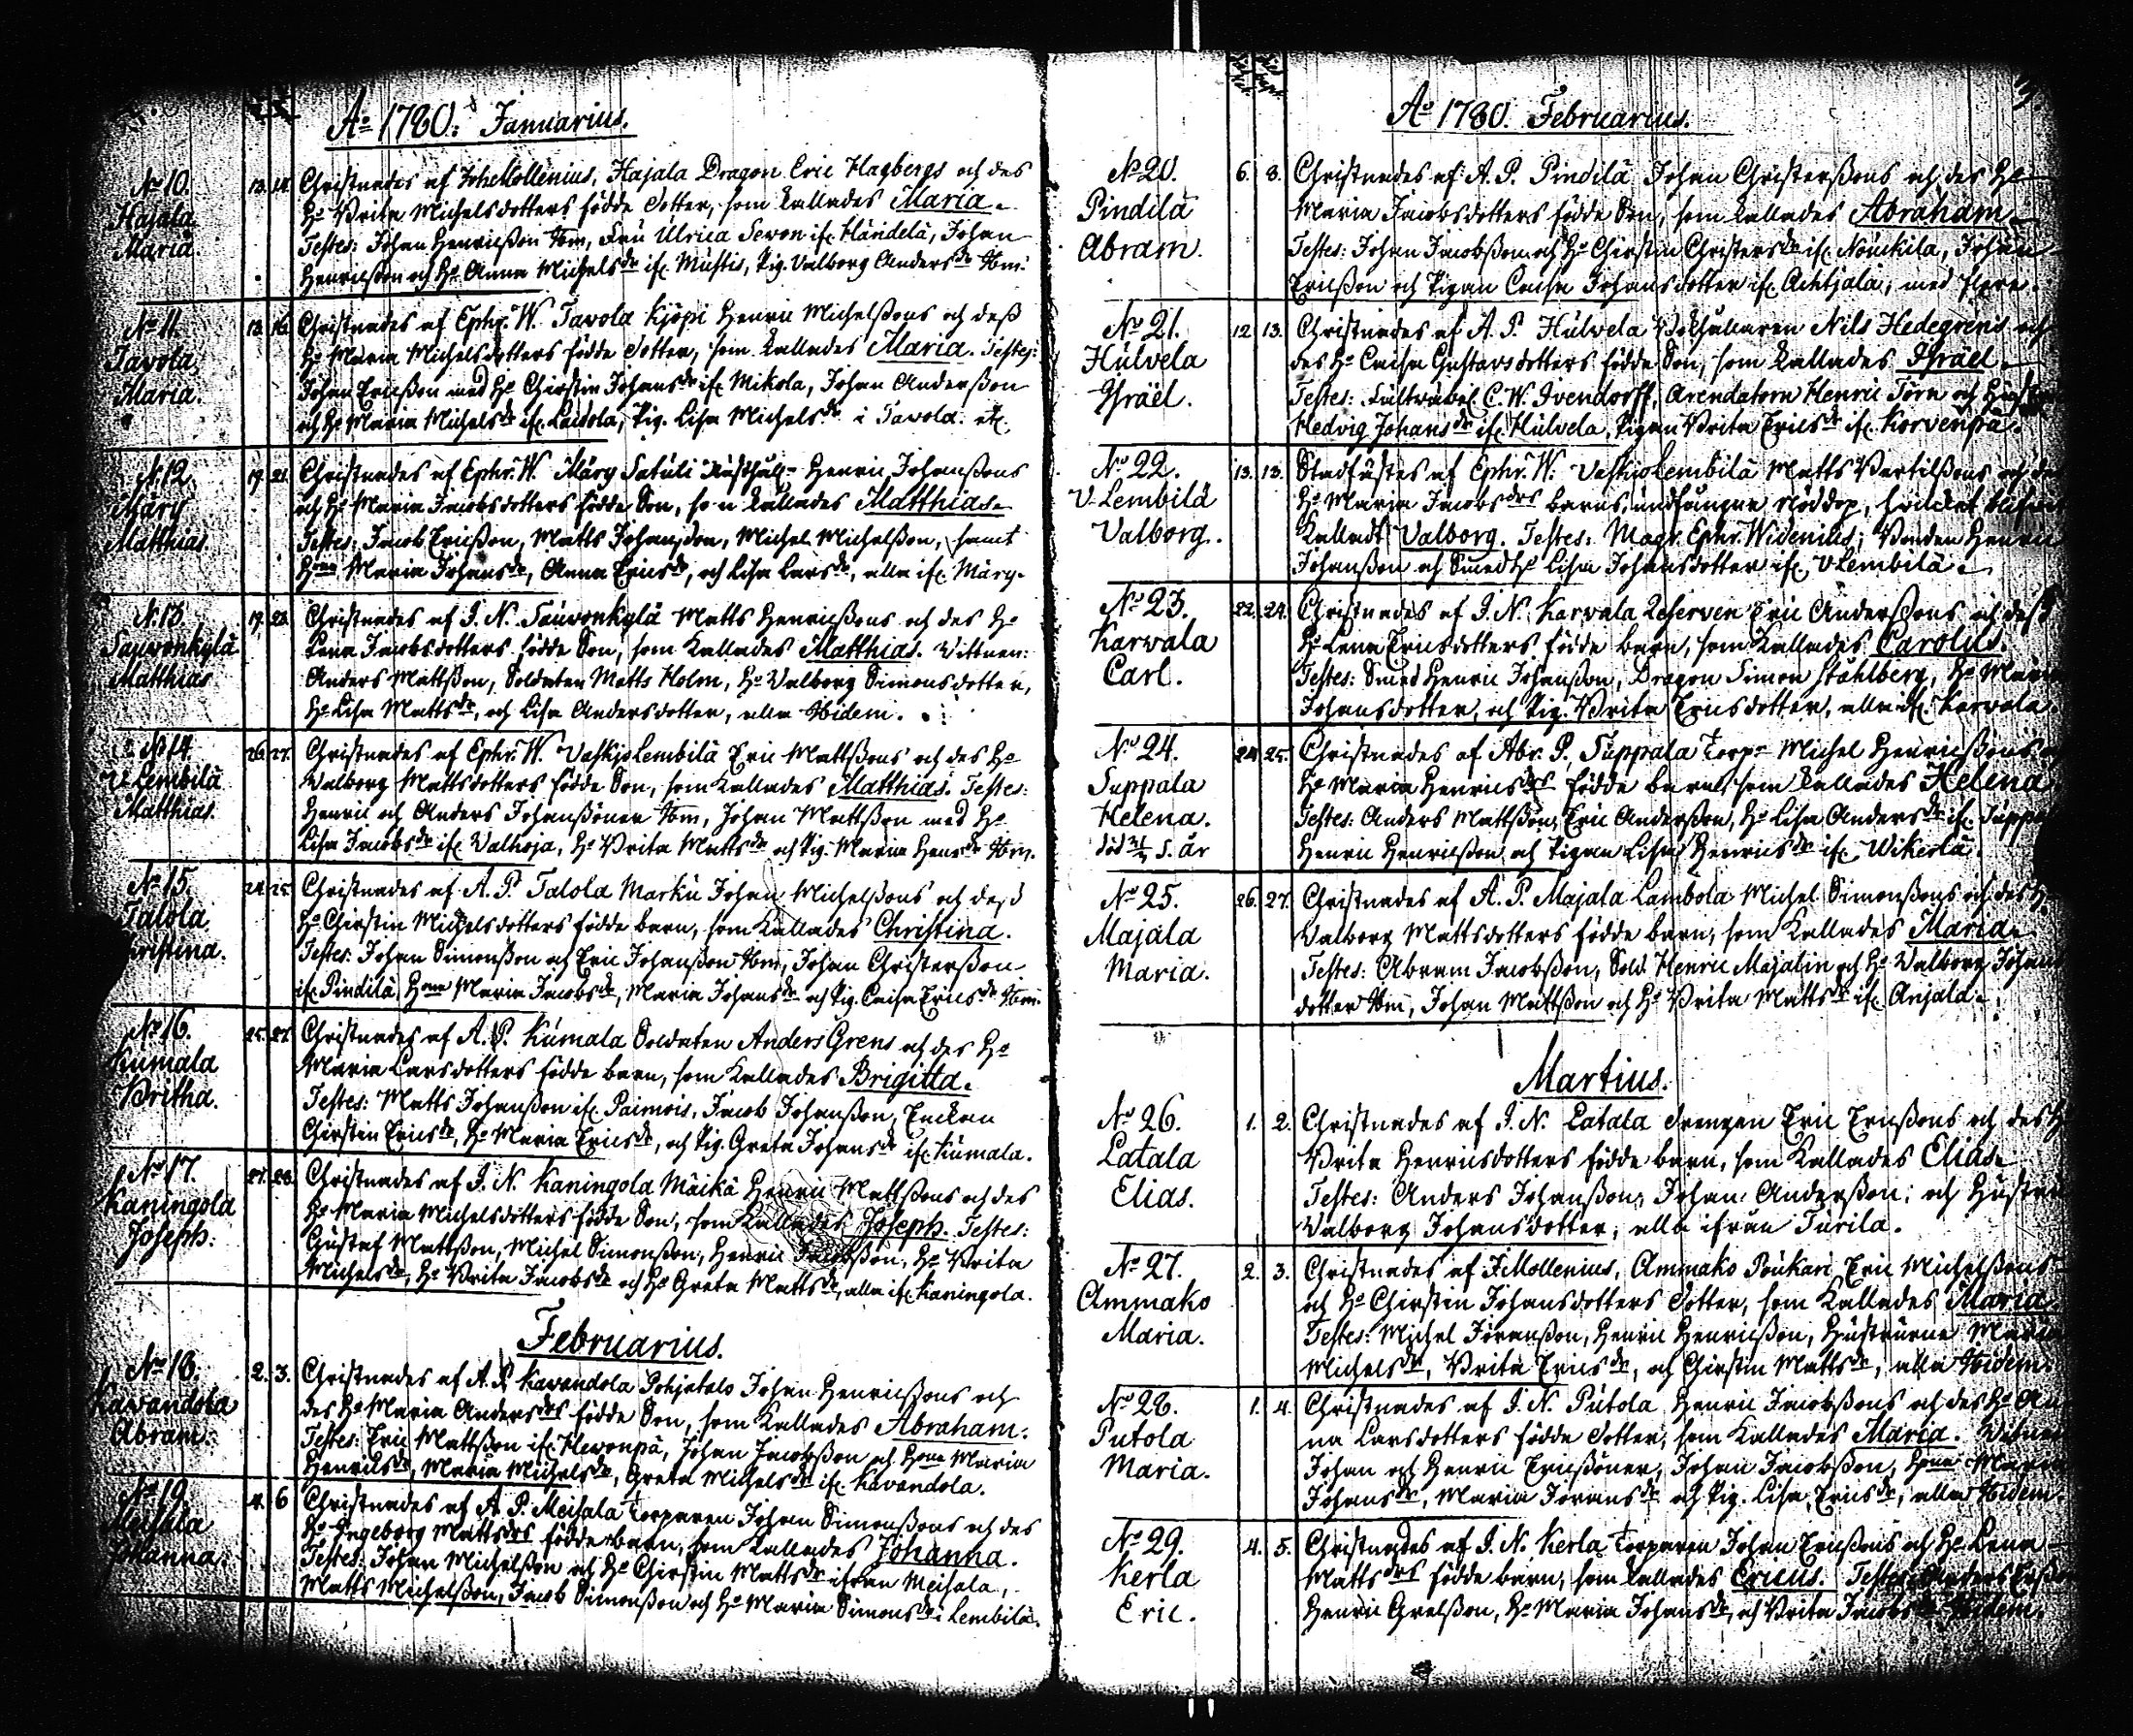 Ao 1780. Januarius.
No 10.
Hajala
Maria.
13. 14. Christnades af Joh. Mollenius, Hajala Dragon Eric Hagbergs och des
Ho Brita Michelsdotters födde Dotter, som kallades Maria.
Testes: Johan Henricsson Ibm, Fru Ulrica Sevon if. Händelä, Johan
Henricsson och Ho Anna Michelsdr if. Mustis, Pig. Valborg Andersdr Ibm.
No 11.
Tavola
Maria.
13. 16. Christnades af Ephr. W. Tavola Kjöpi Henric Michelssons och dess
Ho Maria Michelsdotters födde Dotter, som kallades Maria. Testes:
Johan Ericsson med Ho Chirstin Johansdr if. Mikola, Johan Andersson
och Ho Maria Michelsdr if. Laidola, Pig. Lisa Michelsdr i Tavola. etc.
No 12.
Märy
Matthias
17. 21. Christnades af Ephr. W. Märy Satuli Rusthåll- Henric Johanssons
och Ho Maria Jacobsdotters födde Son, som kallades Matthias.
Testes: Jacob Ericsson, Matts Johansson, Michel Michelsson, samt
Hona Maria Johansdr, Anna Ericsdr, och Lisa Larsdr, alla if. Märy.
No 13.
Sauvonkylä
Matthias
17. 23. Christnades af J. N. Sauvonkylä Matts Henricssons och des Ho
Lena Jacobsdotters födde Son, som kallades Matthias. Vittnen:
Anders Mattsson, Soldaten Matts Holm, Ho Valborg Simonsdotter,
Ho Lisa Mattsdr, och Lisa Andersdotter, alla Ibidem.
No 14.
V. Lembilä
Matthias.
26. 27. Christnades af Ephr. W. Vaskio Lembilä Eric Mattssons och des Ho
Valborg Mattsdotters födde Son, som kallades Matthias. Testes:
Henric och Anders Johanssöner Ibm, Johan Mattsson med Ho
Lisa Jacobsdr if. Valhoja, Ho Brita Mattsdr och Pig. Maria Hensdr Ibm.
No 15.
Talola
Christina.
24. 25. Christnades af A. P. Talola Marku Johan Michelssons och dess
Ho Chirstin Michelsdotters födde barn, som kallades Christina.
Testes: Johan Simonsson och Eric Johansson Ibm, Johan Christersson
if. Pindilä, Hona Maria Jacobsdr, Maria Johansdr och Pig. Caisa Ericsdr Ibm.
No 16.
Kumala
Britha.
25. 27. Christnades af A. P. Kumala Soldaten Anders Grens och des Ho
Maria Larsdotters födde barn, som kallades Brigitta.
Testes: Matts Johansson if. Paimois, Jacob Johansson, Enckan
Chirstin Ericsdr, Ho Maria Ericsdr, och Pig. Greta Johansdr if. Kumala.
No 17.
Kaningola
Joseph.
27. 28. Christnades af J. N. Kaningola Mäikä Henric Mattssons och des
Ho Maria Michelsdotters födde Son, som kallades Joseph. Testes:
Gustaf Mattsson, Michel Simonsson, Henric Jacobsson, Ho Brita
Michelsdr, Ho Brita Jacobsdr och Ho Greta Mattsdr, alla if. Kaningola.
Februarius.
No 18.
Kavandola
Abram.
2. 3. Christnades af A. P. Kavandola Pohjatalo Johan Henricssons och
des Ho Maria Andersdrs födde Son, som kallades Abraham.
Testes: Eric Mattsson if. Hevonpä, Johan Jacobsson och Hona Maria
Henricsdr, Maria Michelsdr, Greta Michelsdr if. Kavandola.
No 19.
Meisala
Johanna.
4. 6 Christnades af A. P. Meisala Torparen Johan Simonssons och des
Ho Ingeborg Mattsdrs födde barn, som kallades Johanna.
Testes: Johan Michelsson och Ho Chirstin Mattsdr ifrån Meisala,
Matts Michelsson, Jacob Simonsson och Ho Maria Simonsdr i Lembilä.
Ao 1780. Februarius.
No 20.
Pindilä
Abram.
6. 8. Christnades af A. P. Pindilä Johan Christerssons och des Ho
Maria Jacobsdotters födde Son, som kallades Abraham.
Testes: Johan Jacobsson och Ho Chirstin Christersdr if. Nouckila, Johan
Ericsson och Pigan Caisa Johansdotter if. Achtjala, med flere.
No 21.
Hulvela
Israël.
12 13. Christnades af A. P. Hulvela Bokhållaren Nils Hedegrens och
des Ho Caisa Gustavsdotters födde Son, som kallades Israël.
Testes: Fältwäbel C. W. Ivendorff, Arendatorn Henric Törn och Hustru
Hedvig Johansdr if. Hulvela, Pigan Brita Ericsdr if. Korvenpä.
No 22.
V. Lembilä
Valborg.
13. 13. Stadfästes af Ephr. W. Vaskio Lembilä Matts Bertilssons och des
Ho Maria Jacobsdrs barns undfångne nöddop, hvilcket blifvit
kalladt Valborg. Testes: Magr. Ephr. Widenius, Bonden Henric
Johansson och Smeds Ho Lisa Johansdotter if. V. Lembilä.
No 23.
Karvala
Carl.
22. 24. Christnades af J. N. Karvala Reserven Eric Anderssons och dess
Ho Lena Ericsdotters födde barn, som kallades Carolus.
Testes: Smed Henric Johansson, Dragon Simon Ståhlberg, Ho Maria
Johansdotter, och Pig. Brita Ericsdotter, alla if. Karvala.
No 24.
Suppala
Helena.
24 25. Christnades af Abr. P. Suppala Torp- Michel Henricssons
Ho Maria Henricsdrs födde barn som kallades Helena
Testes: Anders Mattsson, Eric Andersson, Ho Lisa Andersdr if. Suppala
Henric Henricsson och Pigan Lisa Henricsdr if. Wikerlä.
No 25.
Majala
Maria.
26. 27. Christnades af A. P. Majala Lambola Michel Simonssons och des H.
Valborg Mattsdotters födde barn, som kallades Maria.
Testes: Abram Jacobsson, Sold. Henric Majalin och Ho Valborg Johans
dotter Ibm, Johan Mattsson och Ho Brita Mattsdr if. Anjala.
Martius.
No 26.
Latala
Elias.
1. 2. Christnades af J. N. Latala Drengen Eric Ericssons och des H
Brita Henricsdotters födde barn, som kallades Elias.
Testes: Anders Johansson, Johan Andersson, och Hustru
Valborg Johansdotter, alla ifrån Turila.
No 27.
Ammako
Maria.
2. 3. Christnades af J. Mollenius, Ammako Poukari Eric Michelssons
och Ho Chirstin Johansdotters Dotter, som kallades Maria.
Testes: Michel Göransson, Henric Henricsson, Hustrurne Maria
Michelsdr, Brita Ericsdr, och Chirstin Mattsdr, alla Ibidem.
No 28.
Putola
Maria.
1. 4. Christnades af J. N. Putola Henric Jacobssons och des Ho An
na Larsdotters födde Dotter, som kallades Maria.
Johan och Henric Ericssöner, Johan Jacobsson, Hona Maria
Johansdr, Maria Göransdr och Pig. Lisa Ericsdr, alla Ibidem.
No 29.
Kerla
Eric.
4. 5. Christnades af J. N. Kerla Torparen Johan Ericssons och Ho Lena
Mattsdrs födde barn, som kallades Ericus. Testes: Anders
Henric Grelsson, Ho Maria Johansdr, och Brita Jacobsdr Ibidem.